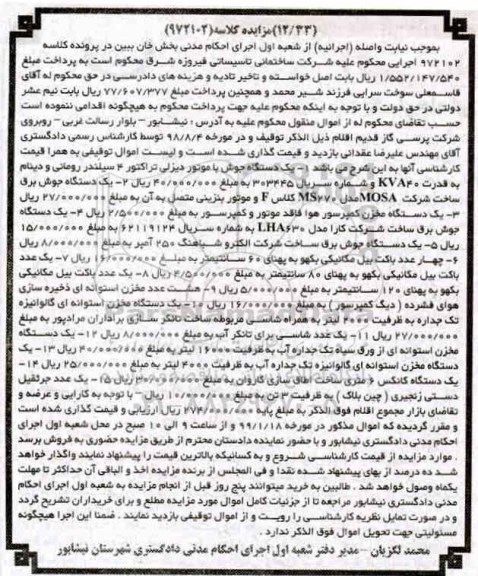 (۱۲/۳۳)مزایده کلاسه(۹۷۲۱۰۲)
بموجب نیابت واصله (اجرائیه) از شعبه اول اجرای احکام مدنی بخش خان ببین در پرونده کلاسه
۹۷۲۱۰۲ اجرایی محکوم علیه شرکت ساختمانی تاسیساتی فیروزه شرق محکوم است به پرداخت مبلغ
۱/۵۵۲/۱۴۷/۵۴۰ ریال بابت اصل خواسته و تاخیر تادیه و هزینه های دادرسی در حق محکوم له آقای
قاسمعلی سوخت سرایی فرزند شیر محمد و همچنین پرداخت مبلغ ۷۷/۶۰۷/۳۷۷ ریال بابت نیم عشر
دولتی در حق دولت و با توجه به اینکه محکوم علیه جهت پرداخت محکوم به هیچگونه اقدامی ننموده است
حسب تقاضای محکوم له از اموال منقول محکوم علیه به آدرس : نیشابور – بلوار رسالت غربی – روبروی
شرکت پرسی گاز قدیم اقلام ذیل الذکر توقیف و در مورخه ۹۸/۸/۴ توسط کارشناس رسمی دادگستری
آقای مهندس علیرضا عقدائی بازدید و قیمت گذاری شده است و لیست اموال توقیفی به همرا قیمت
کارشناسی آنها به این شرح می باشد ۱- یک دستگاه جوش با موتور دیزلی تراکتور ۴ سیلندر رومانی و دینام
به قدرت KVA۴۰ و شماره سریال ۳۰۳۴۴۵ به مبلغ ۴۰/۰۰۰/۰۰۰ ریال ۲- یک دستگاه جوش برق
ساخت شرکت MOSA مدل MS۲۷۰ کلاس F و موتور بنزینی متصل به آن به مبلغ ۲۷/۰۰۰/۰۰۰ ریال
۳- یک دستگاه مخزن کمپرسور هوا فاقد موتور و کمپرسور به مبلغ ۲/۵۰۰/۰۰۰ ریال ۴- یک دستگاه
جوش برق ساخت شرکت کارا مدل LHA۶۳۰ به شماره سریال ۶۲۱۱۹۱۲۴ به مبلغ ۱۵/۰۰۰/۰۰۰
ریال ۵- یک دستگاه جوش برق ساخت شرکت الکترو شباهنگ ۲۵۰ آمپر به مبلغ ۸/۰۰۰/۰۰۰ ریال
۶- چهار عدد باکت بیل مکانیکی بکهو به پهنای ۶۰ سانتیمتر به مبلغ ۱۶/۰۰۰/۰۰۰ ریال ۷- یک عدد
باکت بیل مکانیکی بکهو به پهنای ۸۰ سانتیمتر به مبلغ ۴/۵۰۰/۰۰۰ ریال ۸- یک عدد باکت بیل مکانیکی
بکهو به پهنای ۱۲۰ سانتیمتر به مبلغ ۵/۰۰۰/۰۰۰ ریال ۹- عدد مخزن استوانه ای ذخیره سازی
هوای فشرده ( دیگ کمپرسور ) به مبلغ ۱۶/۰۰۰/۰۰۰ ریال ۱۰- یک دستگاه مخزن استوانه ای گالوانیزه
تک جداره به ظرفیت لیتر به همراه شاسی مربوطه ساخت تانکر سازی براداران مرادپور به مبلغ
۲۷/۰۰۰/۰۰۰ ریال ۱۱- یک عدد شاسی برای تانکر آب به مبلغ ۸/۰۰۰/۰۰۰ ریال ۱۲- یک دستگاه
مخزن استوانه ای از ورق سیاه تک جداره آب به ظرفیت ۱۶۰۰۰ لیتر به مبلغ ۴۰/۰۰۰/۰۰۰ ریال ۱۳- یک
دستگاه مخزن استوانه ای گالوانیزه تک جداره آب به ظرفیت ۴۰۰۰ لیتر به مبلغ ۲۵/۰۰۰/۰۰۰ ریال ۱۴-
یک دستگاه کانکس ۶ متری ساخت اطاق سازی کاروان به مبلغ ۳۰/۰۰۰/۰۰۰ ریال ۱۵- یک عدد جرثقیل
دستی زنجیری ( چین بلاک ) به ظرفیت ۳ تن به مبلغ ۱۰/۰۰۰/۰۰۰ ریال – با توجه به کارایی و عرضه و
تقاضای بازار مجموع اقلام فوق الذکر به مبلغ پایه ۲۷۴/۰۰۰/۰۰۰ ریال ارزیابی و قیمت گذاری شده است
و مقرر گردیده که اموال مذکور در مورخه ۹۹/۱/۱۸ و از ساعت ۹ الی ۱۰ صبح در محل شعبه اول اجرای
احکام مدنی دادگستری نیشابور و با حضور نماینده دادستان محترم از طریق مزایده حضوری به فروش برسد
. موارد مزایده از قیمت کارشناسی شروع و به کسانیکه بالاترین قیمت را پیشنهاد نمایند واگذار خواهد
شد ده درصد از بهای پیشنهاد شده نقدا و فی المجلس از برنده مزایده اخذ و الباقی آن حداکثر تا مهلت
یکماه وصول خواهد شد . طالبین به خرید میتوانند پنج روز قبل از انجام مزایده به شعبه اول اجرای احکام
مدنی دادگستری نیشابور مراجعه تا از جزئیات کامل اموال مورد مزایده مطلع و برای خریداران تشریح گردد
و در صورت تمایل نظریه کارشناسی را رویت و از اموال توقیفی بازدید نمایند . ضمنا این اجرا هیچگونه
مسئولیتی جهت تحویل اموال فوق الذکر ندارد .
محمد لگزیان – مدیر دفتر شعبه اول اجرای احکام مدنی دادگستری شهرستان نیشابور